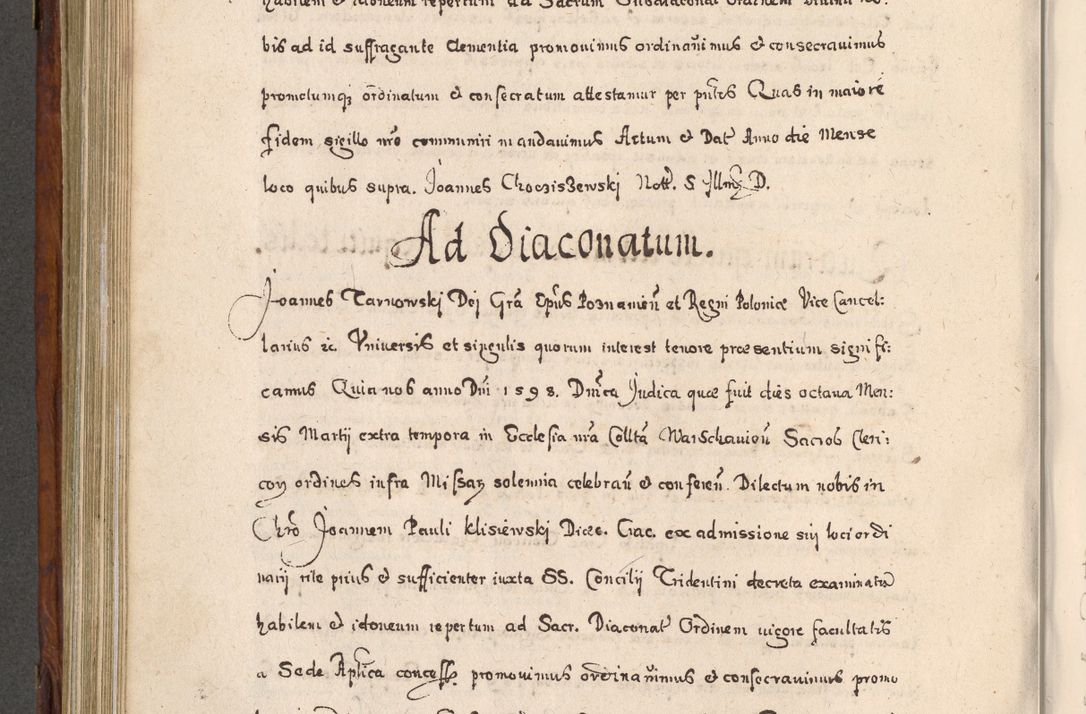 habilem et idoneum repertum ad Sacrum Subdiaconat Ordinem Divina no:
bis ad id suffragante Clementia promovimus ordinavimus et consecravimus
promotumq ordinatum et consecratum attestamur per pntes Quas in maiore
fidem sigillo nro communiri mandavimus Actum et Dat Anno die Mense
loco quibus supra. Joannes Choczisszewski Nott. S Illmi D.
Ad Diaconatum.
Joannes Tarnowski Dei Gra Epus Poznanien et Regni Poloniae Vice Cancel:
larius etc. Universis et singulis quorum interest tenore praesentium signifi:
camus Quia nos anno Dni 1598. Dnica Judica quae fuit dies octava Men:
sis Martij extra tempora in Ecclesia nra Collta Warschavien Sacros Cleri:
cor ordines infra Missar solemnia celebran et conferen. Dilectum nobis in
Chro Joannem Pauli Klisiewski Dioec. Crac. ex admissione sui loci ordi
narij rite prius et sufficienter iuxta SS. Concilij Tridentini decreta examinatu
habilem et idoneum repertum ad Sacr. Diaconat Ordinem vigore facultatis
a Sede Aplica concess. promovimus ordinavimus et consecravimus promo